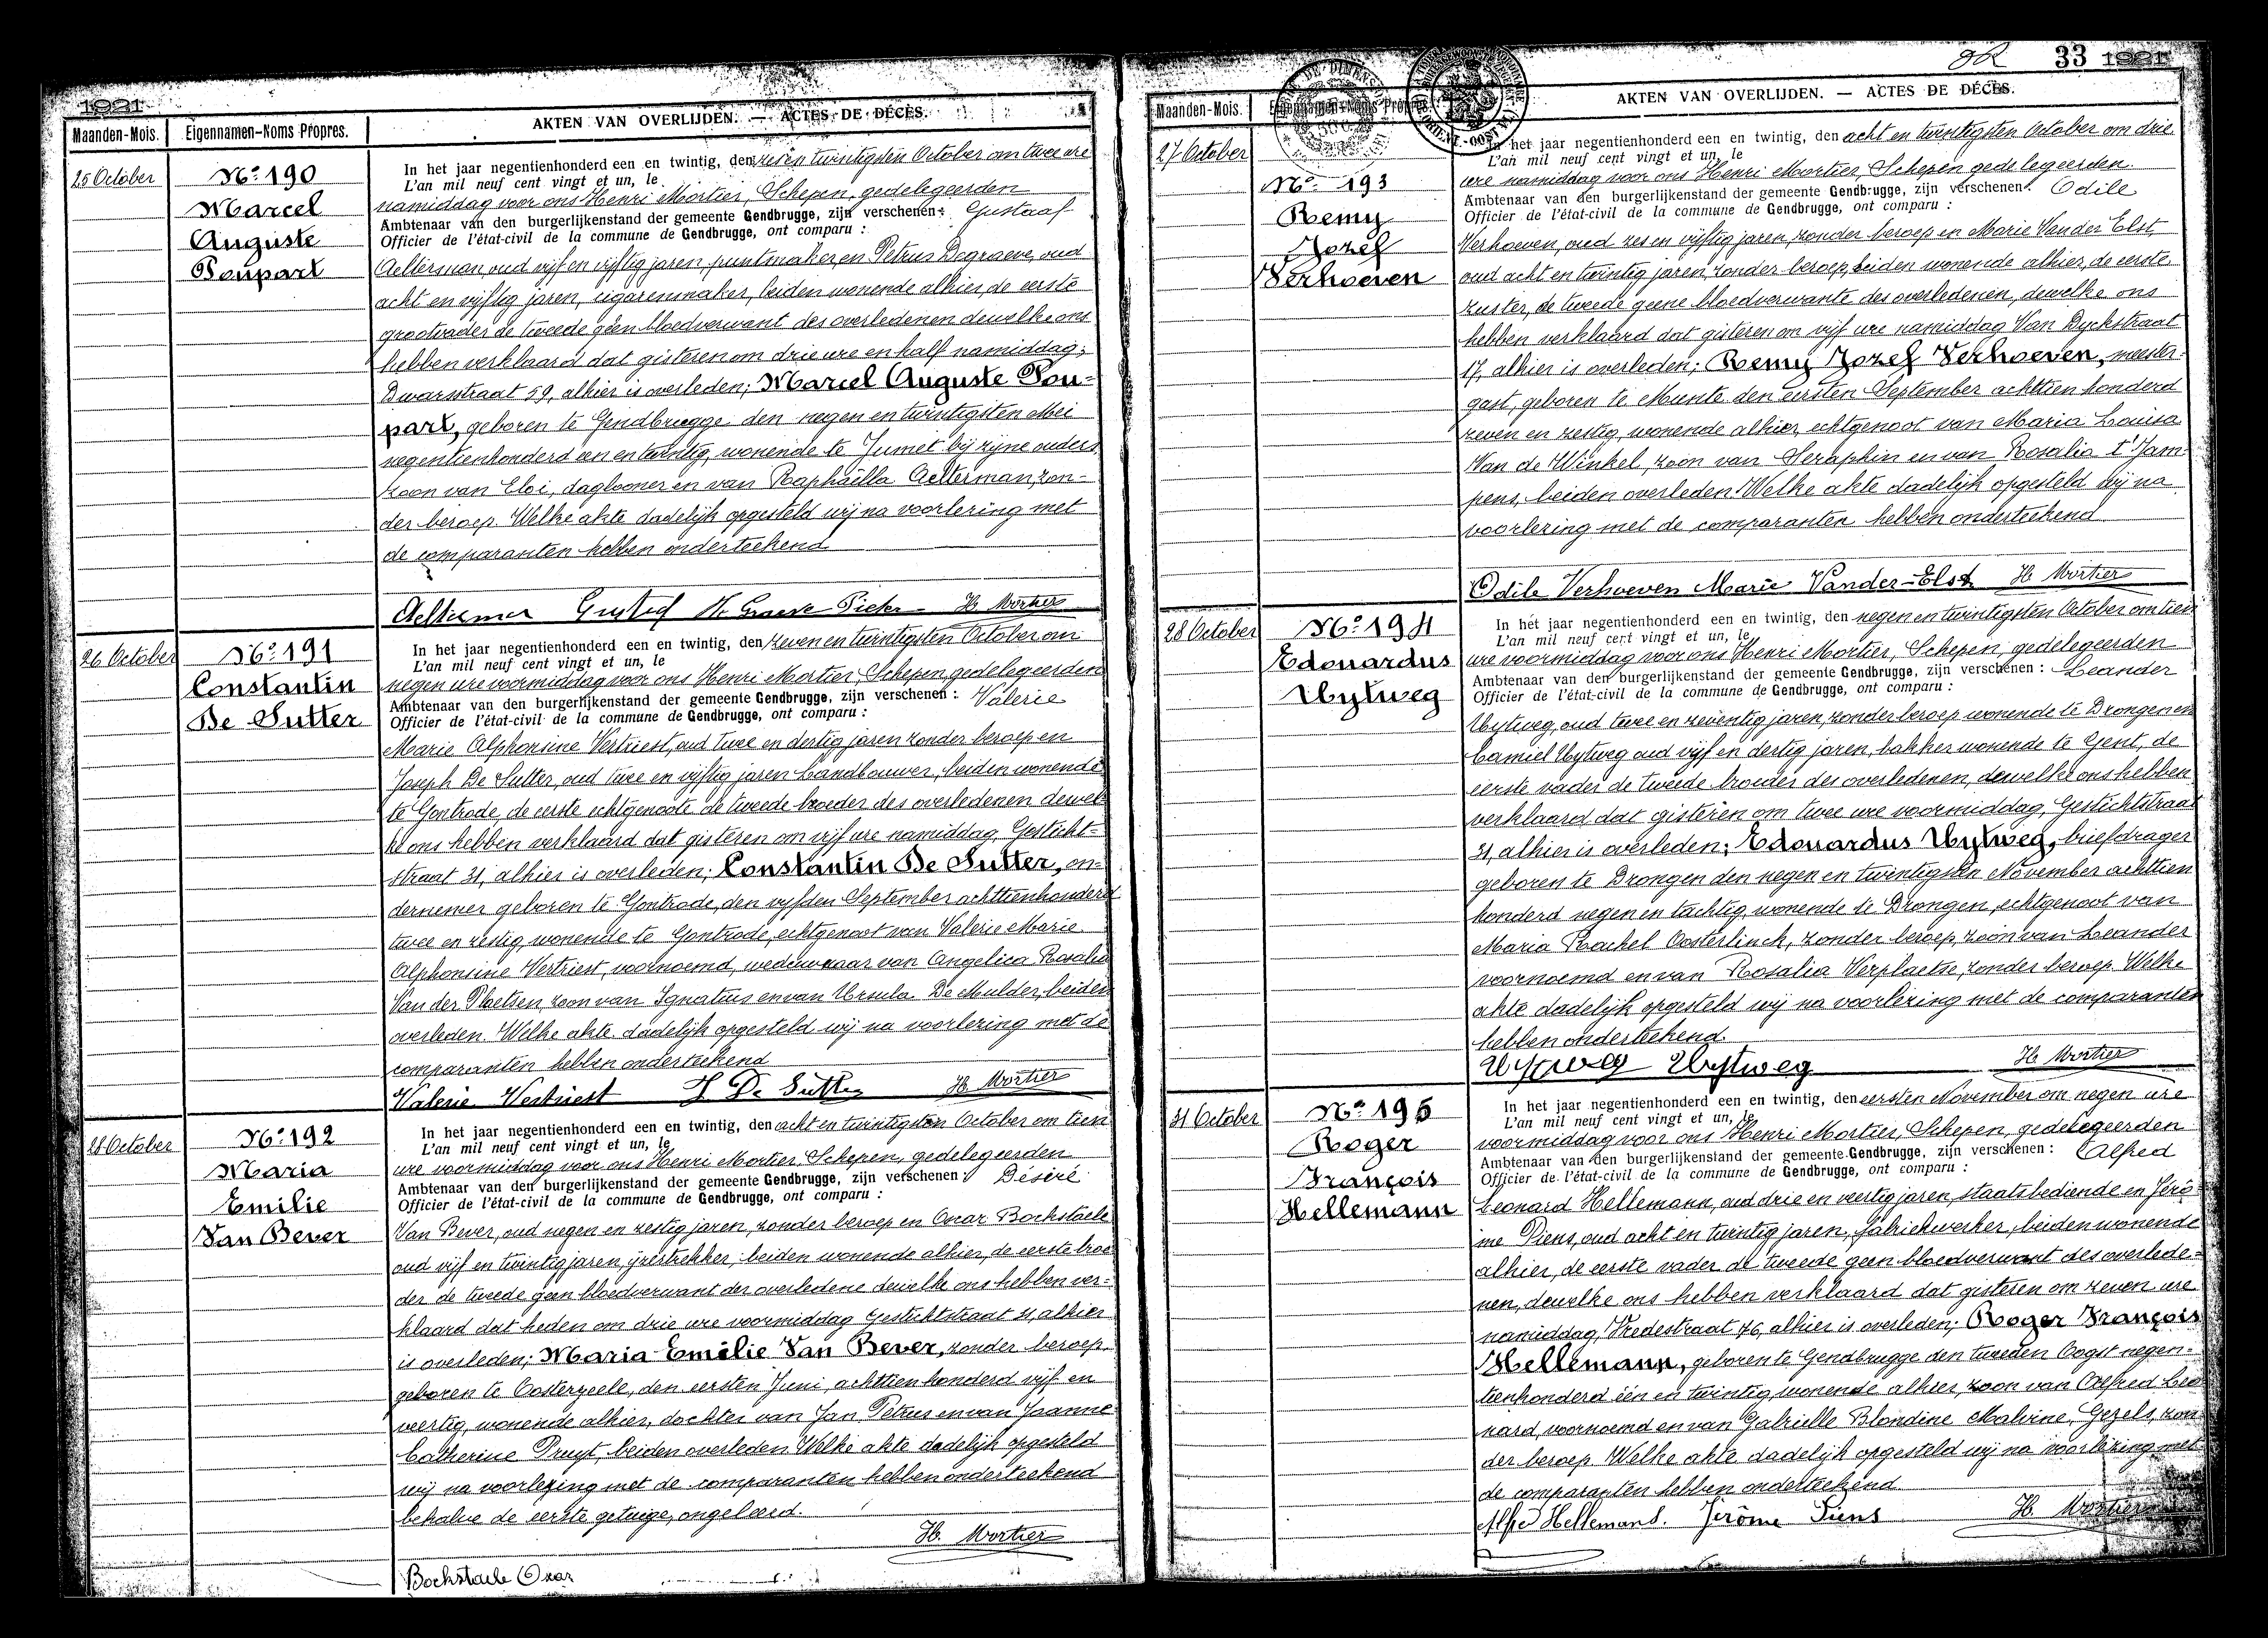 1921
Maanden-Mois. Eigennamen-Noms Propres. AKTEN VAN OVERLIJDEN. — ACTES DE DÉCÈS.
25 October
Nº 190
Marcel
Auguste
Poupart
In het jaar negentienhonderd een en twintig, den zes en twintigsten October om twee ure
L'an mil neuf cent vingt et un, le
namiddag voor ons Henri Mortier, Schepen, gedelegeerden
Ambtenaar van den burgerlijkenstand der gemeente Gendbrugge, zijn verschenen: Gustaaf
Officier de l'état-civil de la commune de Gendbrugge, ont comparu :
Aelterman, oud vijf en vijftig jaren, puntmaker, en Petrus Degraeve, oud
acht en vijftig jaren, cigarenmaker, beiden wonende alhier, de eerste
grootvader de tweede geen bloedverwant des overledenen dewelke ons
hebben verklaard dat gisteren om drie ure en half namiddag,
Dwarsstraat 59, alhier is overleden; Marcel Auguste Pou-
part, geboren te Gendbrugge den negen en twintigsten Mei
negentienhonderd een en twintig, wonende te Jumet bij zijne ouders
zoon van Eloi, daglooner en van Raphaëlla Aelterman, zon-
der beroep. Welke akte dadelijk opgesteld wij na voorlezing met
de comparanten hebben onderteekend
Aelterman Gustaf De Graeve Pieter H. Mortier
26 October
Nº 191
Constantin
De Sutter
In het jaar negentienhonderd een en twintig, den zeven en twintigsten October om
L'an mil neuf cent vingt et un, le
negen ure voormiddag voor ons Henri Mortier, Schepen, gedelegeerden
Ambtenaar van den burgerlijkenstand der gemeente Gendbrugge, zijn verschenen : Valerie
Officier de l'état-civil de la commune de Gendbrugge, ont comparu :
Marie Alphonsine Vertriest, oud twee en dertig jaren zonder beroep en
Joseph De Sutter, oud twee en vijftig jaren Landbouwer, beiden wonende
te Gontrode, de eerste echtgenoote de tweede broeder des overledenen dewel-
ke ons hebben verklaard dat gisteren om vijf ure namiddag, Gesticht-
straat 31, alhier is overleden; Constantin De Sutter, on-
dernemer geboren te Gontrode, den vijfden September achttienhonderd
twee en zestig, wonende te Gontrode, echtgenoot van Valerie Marie
Alphonsine Vertriest, voornoemd, weduwnaar van Angelica Rosalia
Van der Plaetsen, zoon van Ignatius en van Ursula De Mulder, beiden
overleden. Welke akte dadelijk opgesteld wij na voorlezing met de
comparanten hebben onderteekend
Valerie Vertriest J De Sutter H. Mortier
28 October
Nº 192
Maria
Emilie
Van Bever
In het jaar negentienhonderd een en twintig, den acht en twintigsten October om tien
L'an mil neuf cent vingt et un, le
ure voormiddag voor ons Henri Mortier, Schepen, gedelegeerden
Ambtenaar van den burgerlijkenstand der gemeente Gendbrugge, zijn verschenen : Désiré
Officier de l'état-civil de la commune de Gendbrugge, ont comparu :
Van Bever, oud negen en zestig jaren, zonder beroep en Oscar Bockstaele
oud vijf en twintig jaren, ijzertrekker, beiden wonende alhier, de eerste broe-
der de tweede geen bloedverwant der overledene dewelke ons hebben ver-
klaard dat heden om drie ure voormiddag Gestichtstraat 31, alhier
is overleden; Maria Emilie Van Bever, zonder beroep,
geboren te Oosterzeele, den eersten Juni, achttienhonderd vijf en
veertig, wonende alhier, dochter van Jan Petrus en van Joanne
Catherine Pruyt, beiden overleden. Welke akte dadelijk opgesteld
wij na voorlezing met de comparanten hebben onderteekend
behalve de eerste getuige, ongeleerd.
H. Mortier
Bockstaele Oscar
33 1921
Maanden-Mois. Eigennamen-Noms Propres. AKTEN VAN OVERLIJDEN. — ACTES DE DÉCÈS.
27 October
Nº 193
Remy
Jozef
Verhoeven
In het jaar negentienhonderd een en twintig, den acht en twintigsten October om drie
L'an mil neuf cent vingt et un, le
ure namiddag voor ons Henri Mortier, Schepen gedelegeerden
Ambtenaar van den burgerlijkenstand der gemeente Gendbrugge, zijn verschenen : Odile
Officier de l'état-civil de la commune de Gendbrugge, ont comparu :
Verhoeven, oud zes en vijftig jaren, zonder beroep en Marie Vander Elst,
oud acht en twintig jaren, zonder beroep, beiden wonende alhier, de eerste
zuster, de tweede geene bloedverwante des overledenen, dewelke ons
hebben verklaard dat gisteren om vijf ure namiddag Van Dyckstraat
17, alhier is overleden; Remy Jozef Verhoeven, meester-
gast, geboren te Munte den eersten September achttien honderd
zeven en zestig, wonende alhier, echtgenoot van Maria Louisa
Van de Winkel, zoon van Seraphin en van Rosalia t'Jam-
pens, beiden overleden. Welke akte dadelijk opgesteld wij na
voorlezing met de comparanten hebben onderteekend
Odile Verhoeven Marie Vander-Elst H. Mortier
28 October
Nº 194
Edouardus
Uytweg
In het jaar negentienhonderd een en twintig, den negen en twintigsten October om tien
L'an mil neuf cent vingt et un, le
ure voormiddag voor ons Henri Mortier, Schepen, gedelegeerden
Ambtenaar van den burgerlijkenstand der gemeente Gendbrugge, zijn verschenen : Leander
Officier de l'état-civil de la commune de Gendbrugge, ont comparu :
Uytweg, oud twee en zeventig jaren, zonder beroep wonende te Drongen en
Camiel Uytweg oud vijf en dertig jaren, bakker wonende te Gent, de
eerste vader de tweede broeder des overledenen, dewelke ons hebben
verklaard dat gisteren om twee ure voormiddag, Gestichtstraat
31, alhier is overleden; Edouardus Uytweg, briefdrager
geboren te Drongen den negen en twintigsten November achttien
honderd negen en tachtig, wonende te Drongen, echtgenoot van
Maria Rachel Oosterlinck, zonder beroep, zoon van Leander
voornoemd en van Rosalia Verplaetse, zonder beroep. Welke
akte dadelijk opgesteld wij na voorlezing met de comparanten
hebben onderteekend.
Uytweg Uytweg H. Mortier
31 October
Nº 195
Roger
François
Hellemann
In het jaar negentienhonderd een en twintig, den eersten November om negen ure
L'an mil neuf cent vingt et un, le
voormiddag voor ons Henri Mortier, Schepen, gedelegeerden
Ambtenaar van den burgerlijkenstand der gemeente Gendbrugge, zijn verschenen : Alfred
Officier de l'état-civil de la commune de Gendbrugge, ont comparu :
Leonard Hellemann, oud drie en veertig jaren, staatsbediende en Jérô-
me Piens, oud acht en twintig jaren, fabriekwerker, beiden wonende
alhier, de eerste vader de tweede geen bloedverwant des overlede-
nen, dewelke ons hebben verklaard dat gisteren om zeven ure
namiddag, Vredestraat 76, alhier is overleden; Roger François
Hellemann, geboren te Gendbrugge den tweeden Oogst negen-
tienhonderd één en twintig wonende alhier, zoon van Alfred Leo-
nard, voornoemd en van Gabrielle Blondine Malvine Gezels, zon-
der beroep. Welke akte dadelijk opgesteld wij na voorlezing met
de comparanten hebben onderteekend.
Alfred Hellemans. Jérôme Piens H. Mortier